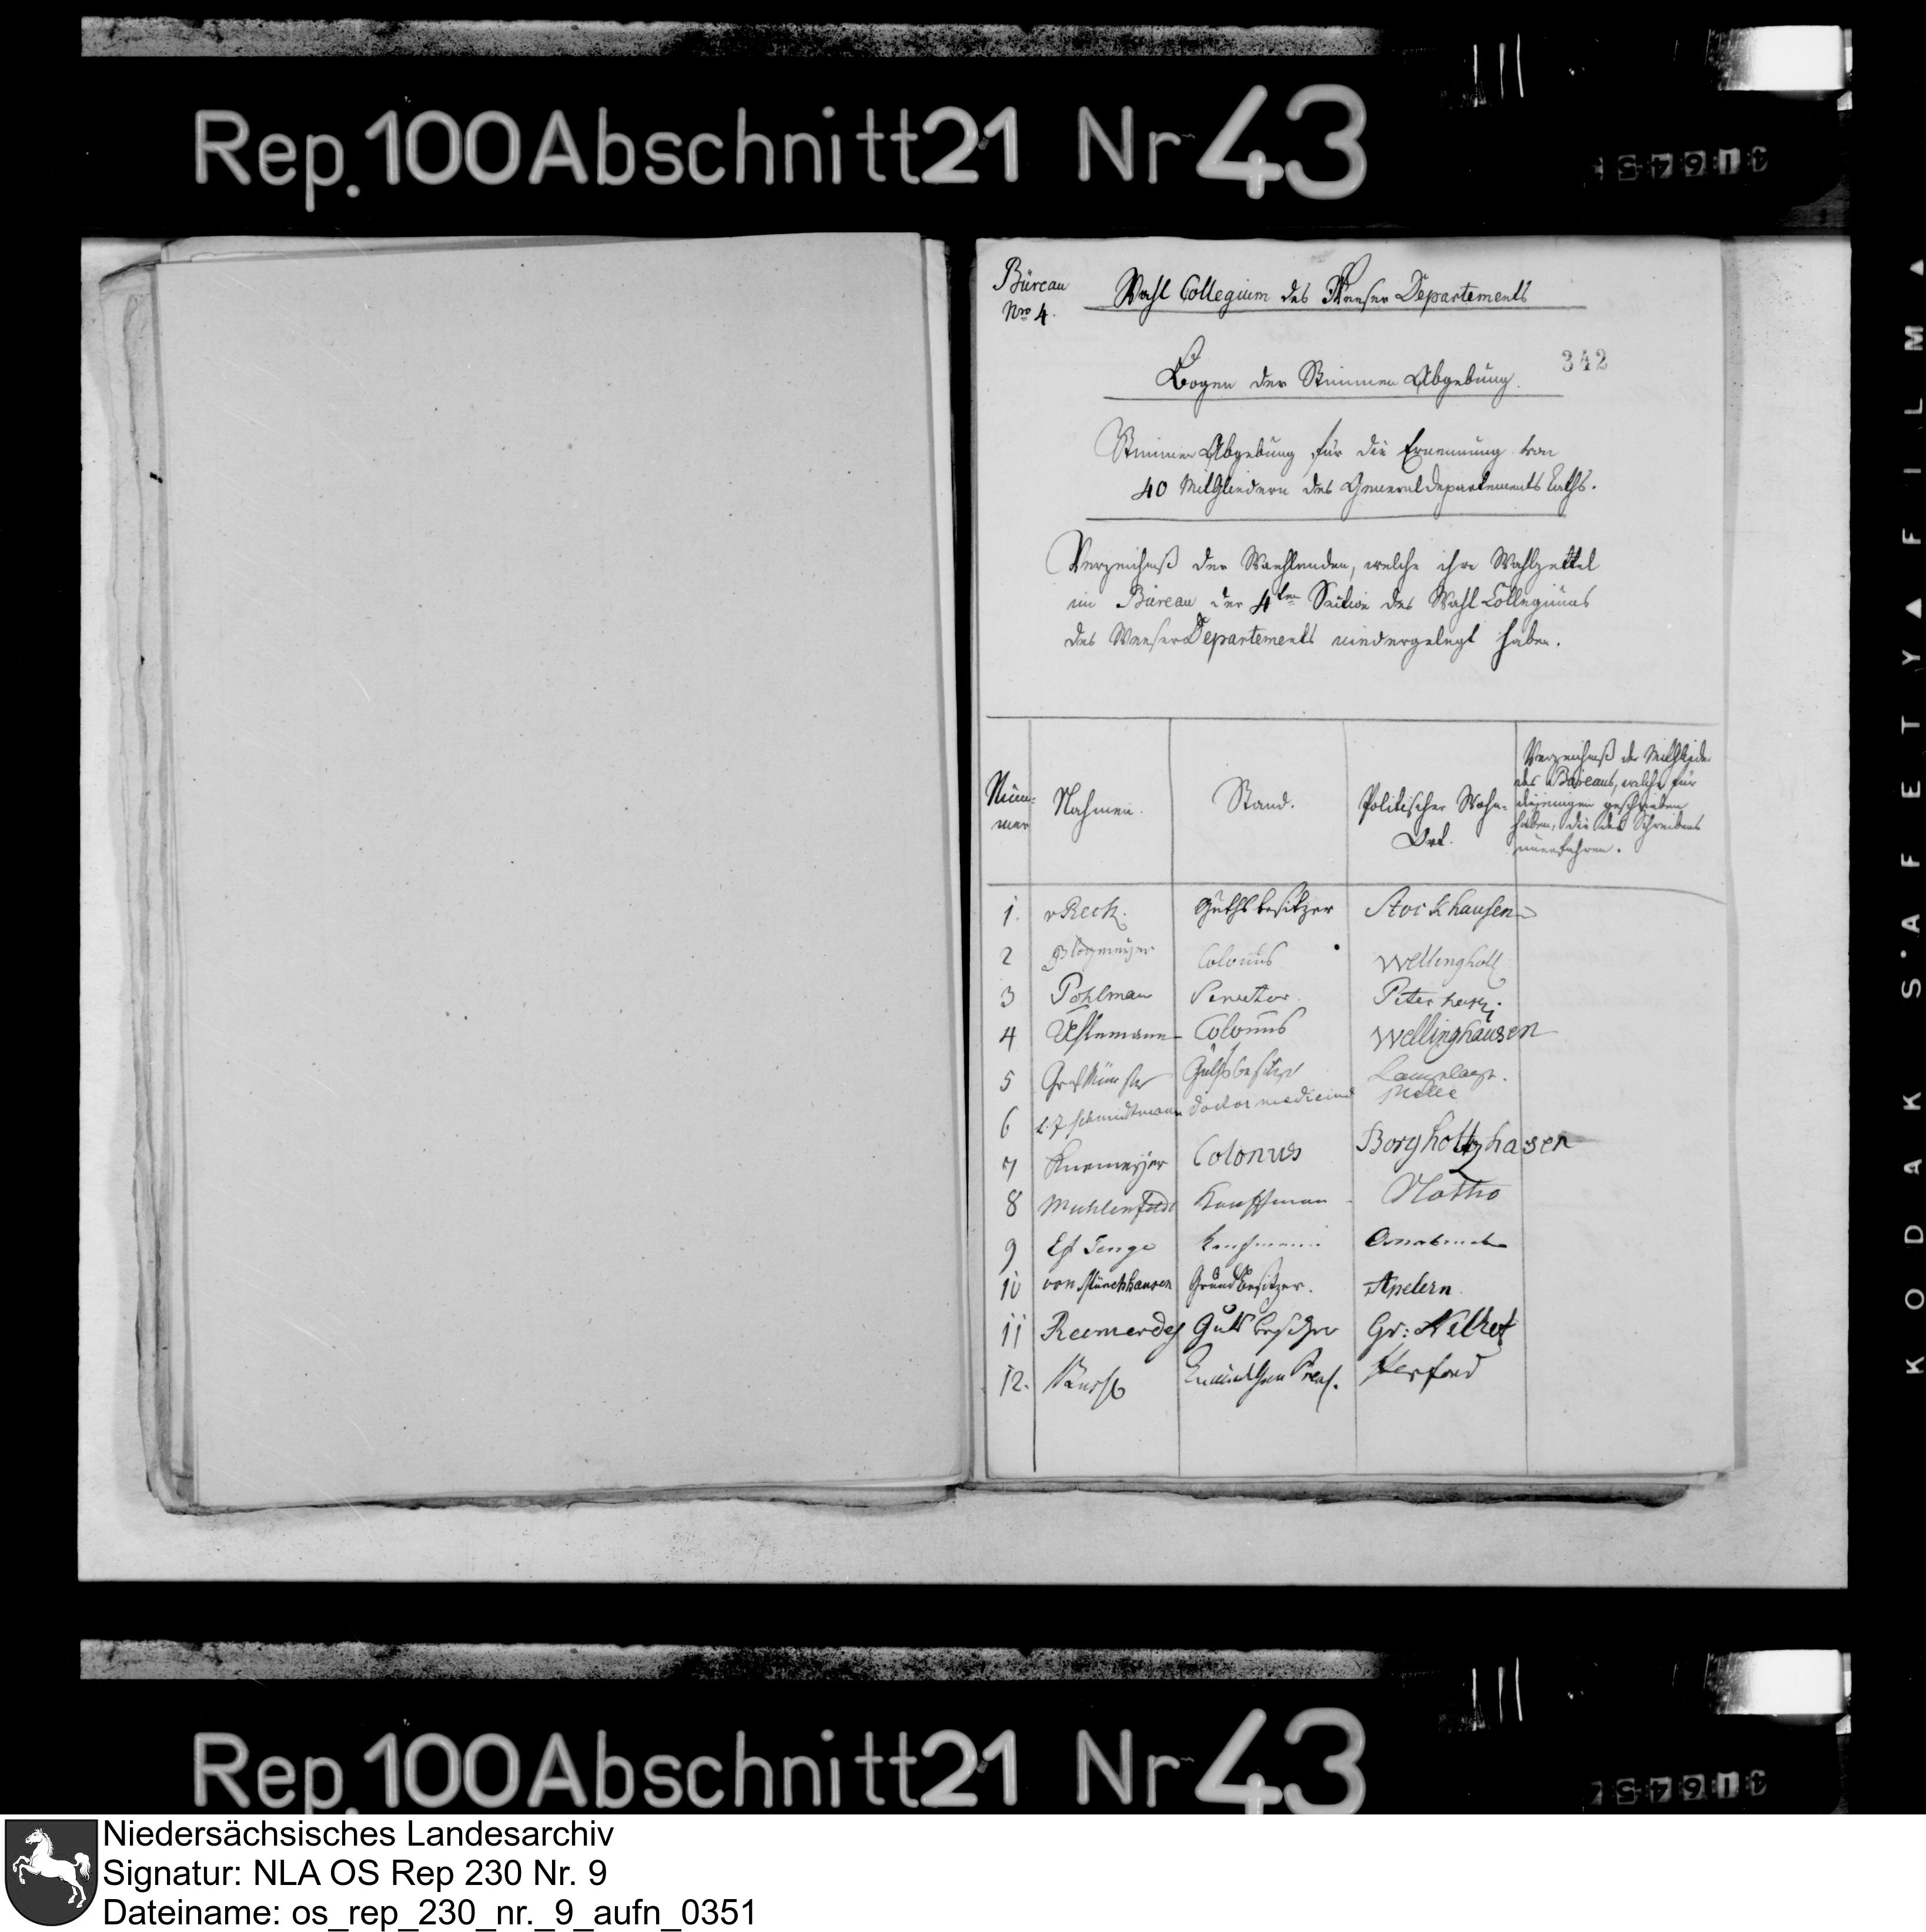 Rep. 100 Abschnitt 21 Nr 43
Büreau
Nro 4.
Wahl Collegium des Weser Departements
342
Bogen der Stimmen Abgebung.
Stimmen Abgebung für die Ernennung von
40 Mitgliedern des Generaldepartements Raths.
Verzeichniß der Waehlenden, welche ihre Wahlzettel
im Büreau der 4ten Section des Wahl Collegiums
des Weser Departements niedergelegt haben.
Num=
mer
Nahmen.
Stand.
Politischer Wohn=
Ort.
Verzeichniß der Mitglieder
des Büreaus, welche für
diejenigen geschrieben
haben, die des Schreibens
unerfahren.
1. v Reck. Guthsbesitzer Stockhausen
2 Colonus
3 Pohlman Senator Petershag.
4 Colonus Wellinghausen
5 Graf Münster Guthsbesitzer Langelage.
6 Schmidtmann Doctor medicinae Melle
7 Colonus Borgholtzhasen
8 Muhlenfeldt Kauffman Vlotho
9 Tenge Kaufmann Osnabruck
10 von Münchhausen Grundbesitzer. Apelern
11 Reemerdes Guts besitzer Gr:
12. Herford
KODAK SAFETY FILM
Rep. 100 Abschnitt 21 Nr 43
Niedersächsisches Landesarchiv
Signatur: NLA OS Rep 230 Nr. 9
Dateiname: os_rep_230_nr._9_aufn_0351